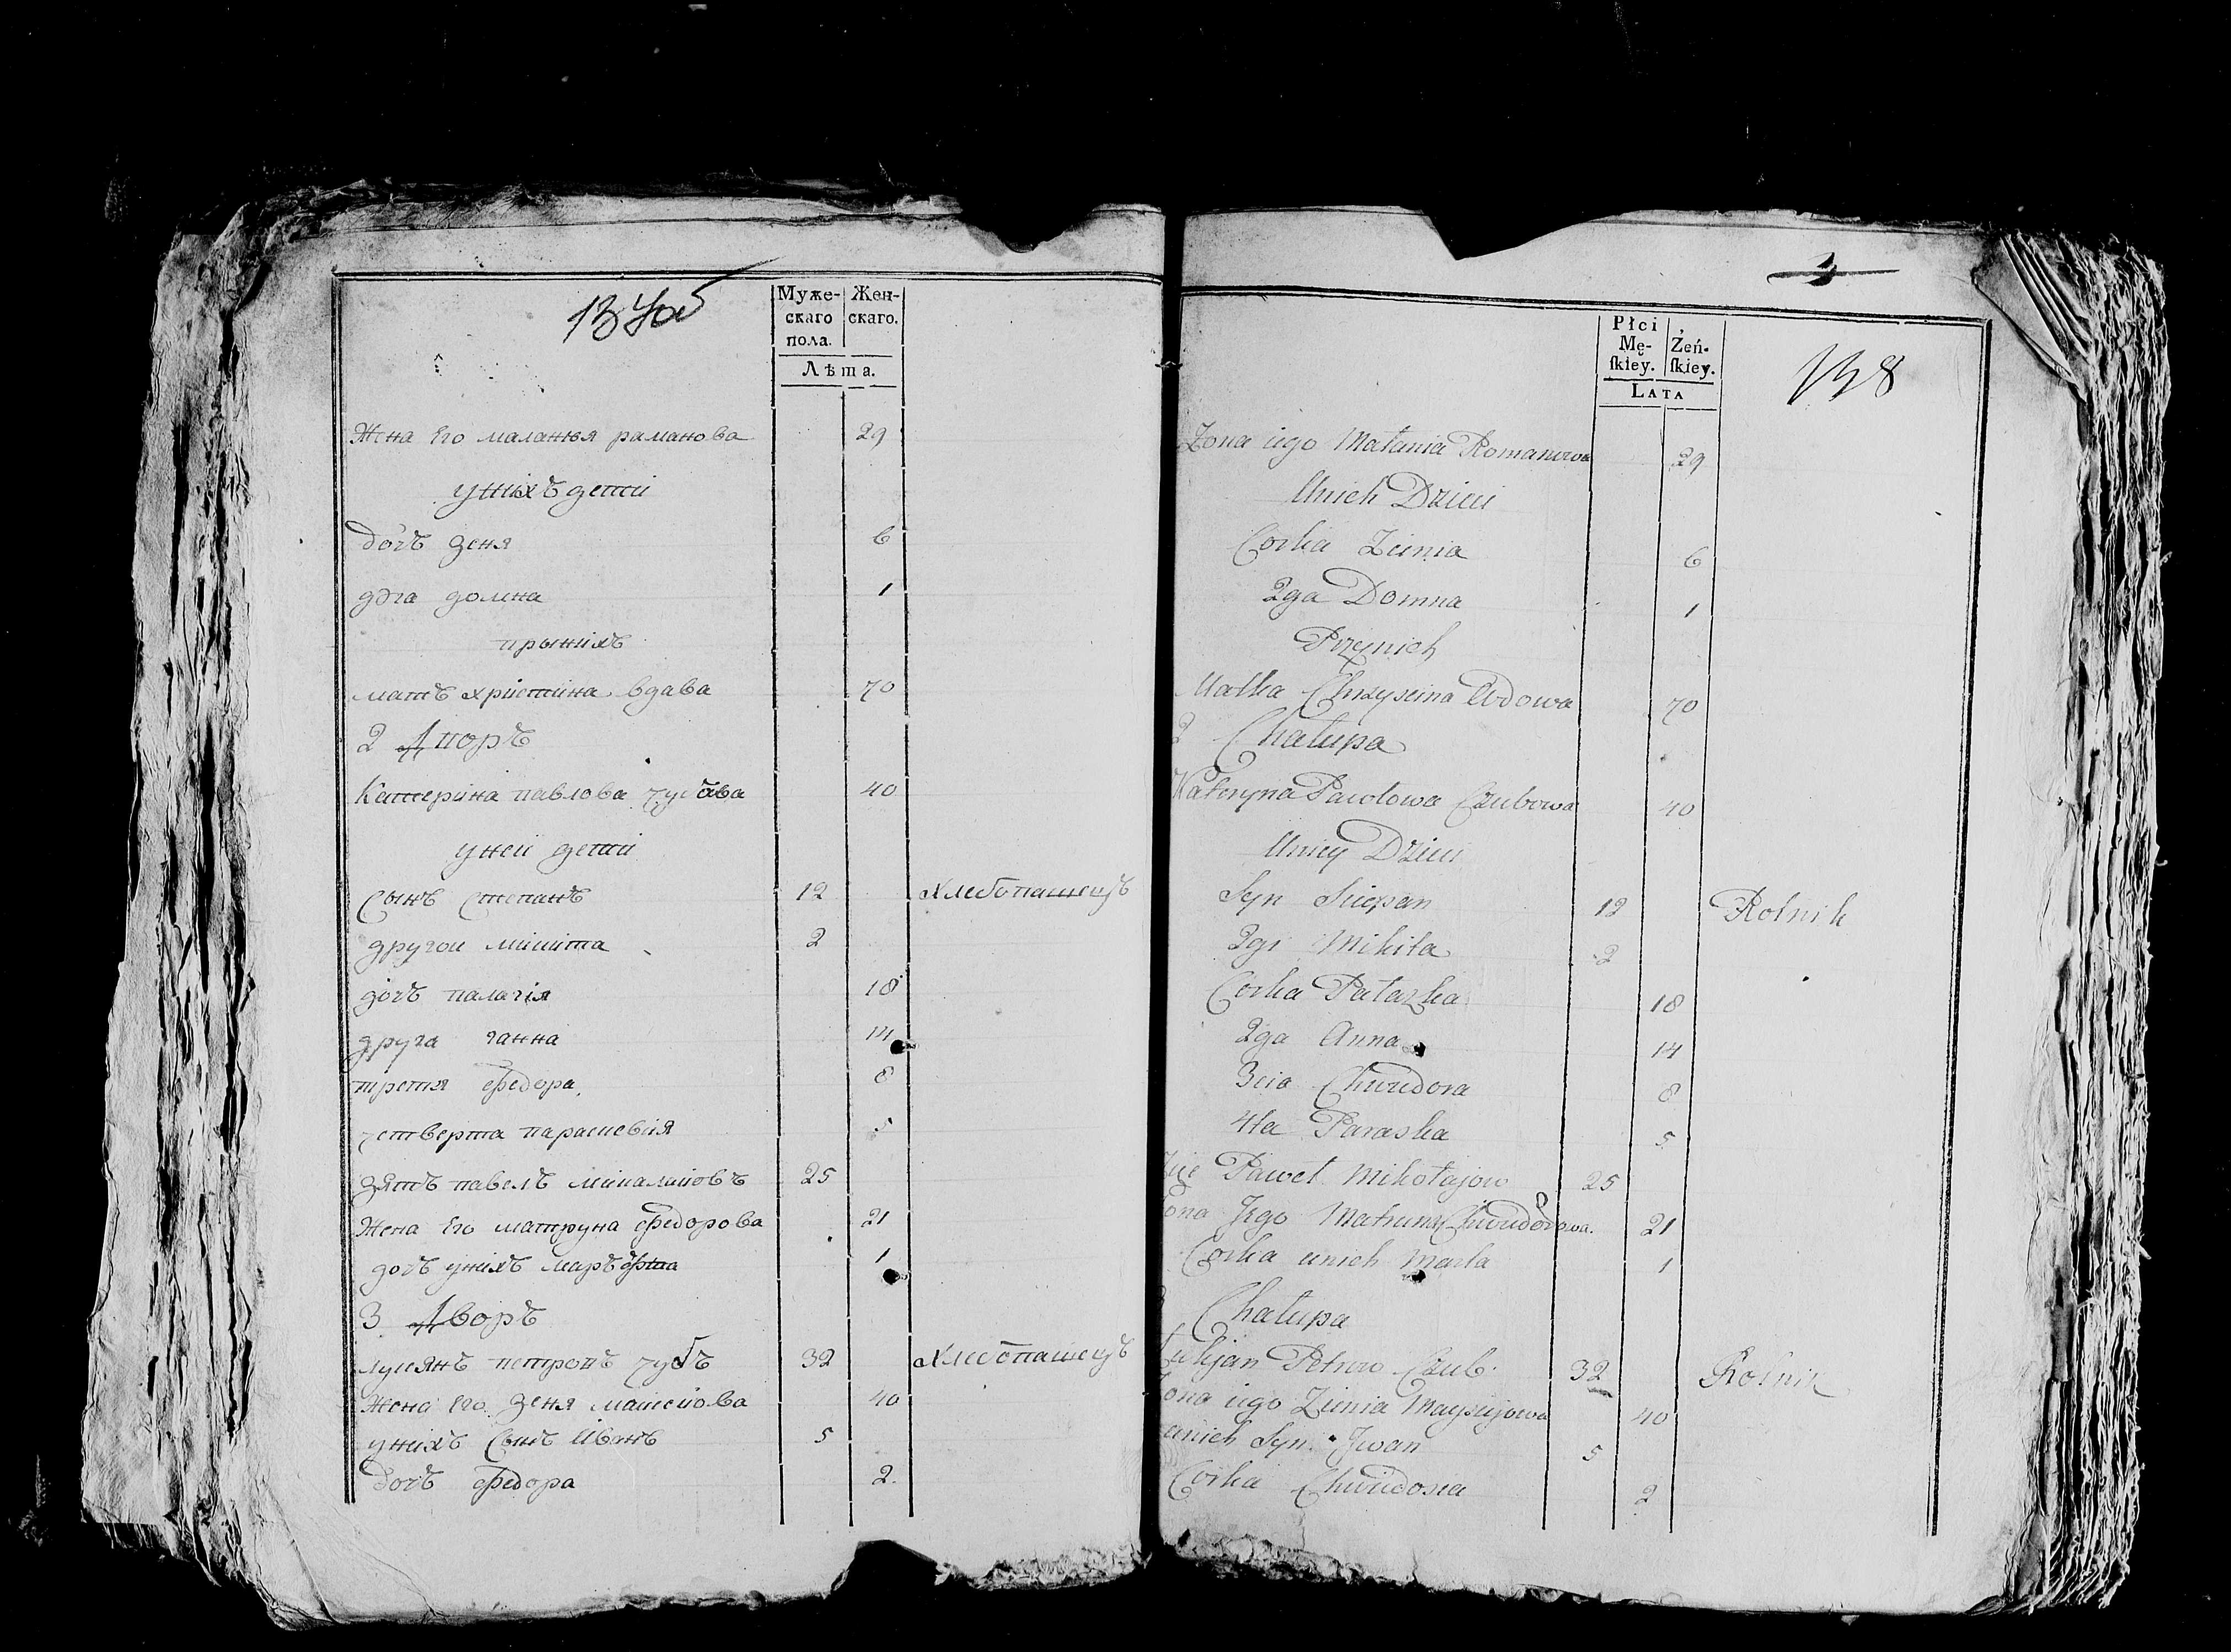 137 об
Муже-скаго пола.
Жен-скаго.
Лѣта.
Жена Его маланья раманова 29
унихъ дети
дочъ зеня 6
дрга домна 1
прыниxъ
матъ христина вдава 70
2 Дворъ
Катерина павлова чубова 40
уней дети
Сынъ Степанъ 12 хлебопашецъ
другои микита 2
дочъ палагія 18
друга ганна 14
третя федора 8
четверта параскевія 5
зятъ павелъ микалаiовъ 25
Жена Его матруна федорова 21
дочъ унихъ маръфта 1
3 Дворъ
лукянъ петровъ чубъ 32 хлебопашецъ
Жена Его зеня матеiова 40
унихъ Сынъ Иванъ 5
дочъ федора 2.
138
Płci Mę-ſkiey.
Żeń-ſkiey.
LATA
Zona iego Małania Romanowa 29
Unich Dzieci
Corka Zienia 6
2ga Domna 1
Przynich
Matka Chrzyscina Wdowa 70
2 Chałupa
Kateryna Pawłowa Czubowa 40
Uniey Dzieci
Syn Sciepan 12 Rolnik
2gi Mikita 2
Corka Pałazka 18
2ga Anna 14
3cia Chwiedora 8
4ta Paraska 5
Paweł Mikołajow 25
ona Jego Matruna Chwiedorowa. 21
Corka unich Marta 1
Chałupa
Łukjan Petrow Czub. 32 Rolnik
ona iego Zienia Maysiejowa 40
unich Syn Jwan 5
Corka Chwiedosia 2